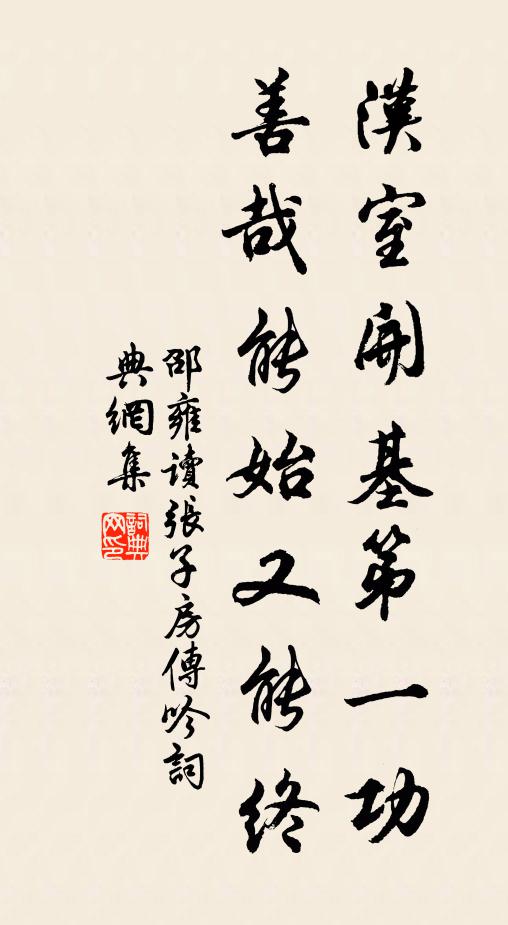 漢室開基第一功
善哉能始又能終
邵雍讀張子房傳吟詞
典網集
詞典網印